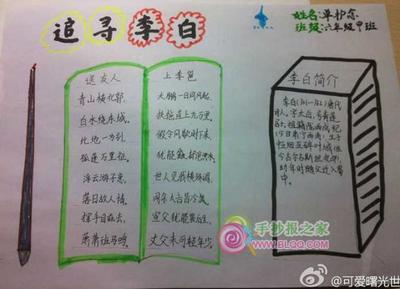 追寻李白
姓名:单护念
班级:六年级甲班
送友人
青山横北郭,
白水绕东城。
此地一为别,
孤蓬万里征。
浮云游子意,
落日故人情。
挥手自兹去,
萧萧班马鸣。
上李邕
大鹏一日同风起,
扶摇直上九万里。
假令风歇时下来,
犹能簸却沧溟水。
世人见我恒殊调,
闻余大言皆冷笑。
宣父犹能畏后生,
丈夫未可轻年少。
李白简介
李白(701-762)唐代
诗人。字太白,号青莲
居士,祖籍陇西成纪
(今甘肃
生于
碎叶城
今吉尔吉斯
幼年时随父迁入蜀
中。
手抄报之家
WWW.BLQQ.COM
@可爱曙光世